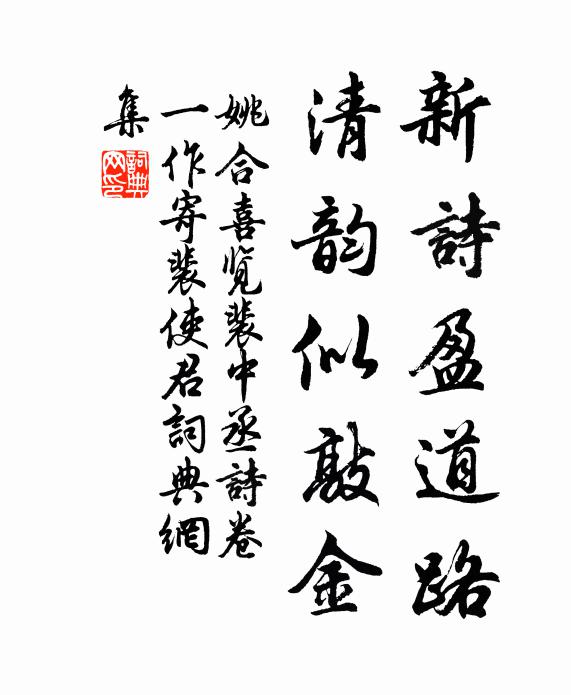 新詩盈道路
清韵似敲金
姚合喜览裴中丞詩卷
一作寄裴使君詞典網
集
詞典
网印